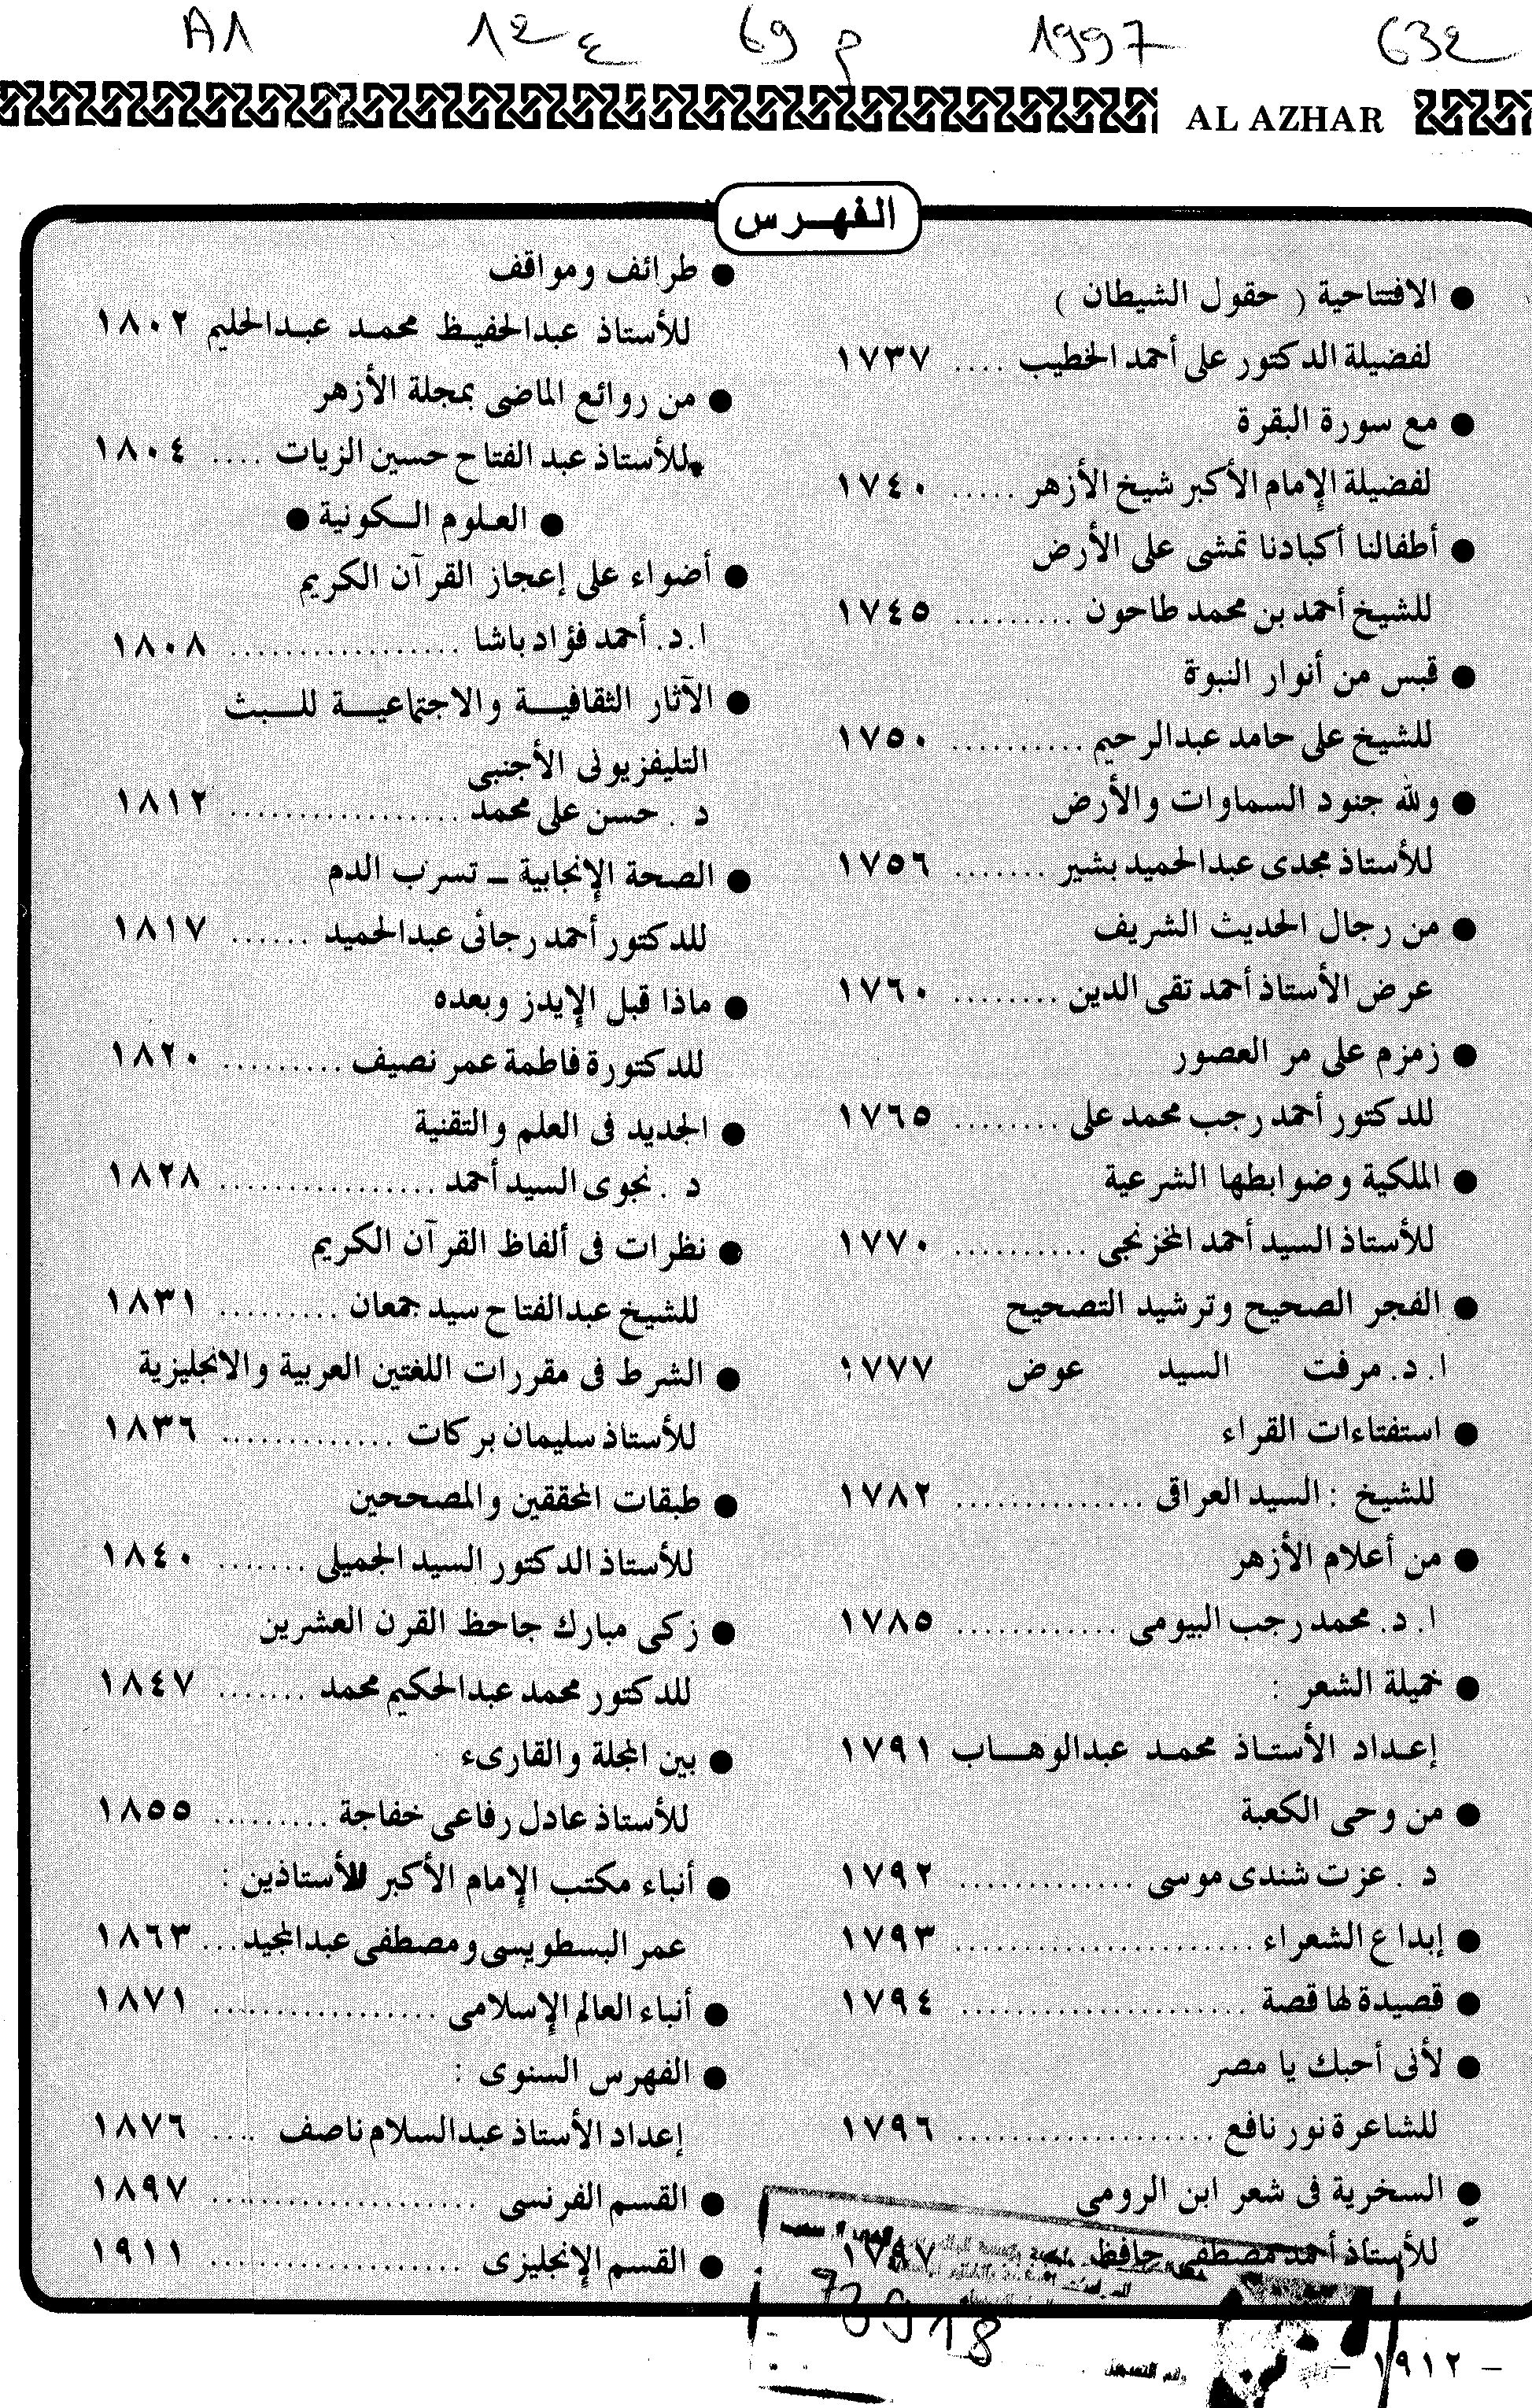 A1 12 ع 69 م 1997 632
AL AZHAR
الفهرس
● الافتتاحية ( حقول الشيطان )
لفضيلة الدكتور على أحمد الخطيب .... ١٧٣٧
● مع سورة البقرة
لفضيلة الإمام الأكبر شيخ الأزهر ..... ١٧٤٠
● أطفالنا أكبادنا تمشى على الأرض
للشيخ أحمد بن محمد طاحون ......... ١٧٤٥
● قبس من أنوار النبوة
للشيخ على حامد عبدالرحيم .......... ١٧٥٠
● ولله جنود السماوات والأرض
للأستاذ مجدى عبدالحميد بشير ....... ١٧٥٦
● من رجال الحديث الشريف
عرض الأستاذ أحمد تقى الدين ........ ١٧٦٠
● زمزم على مر العصور
للدكتور أحمد رجب محمد على ........ ١٧٦٥
● الملكية وضوابطها الشرعية
للأستاذ السيد أحمد المخزنجى .......... ١٧٧٠
● الفجر الصحيح وترشيد التصحيح
ا. د. مرفت السيد عوض ١٧٧٧
● استفتاءات القراء
للشيخ : السيد العراقى .............. ١٧٨٢
● من أعلام الأزهر
ا. د. محمد رجب البيومى ............ ١٧٨٥
● خميلة الشعر :
إعداد الأستاذ محمد عبدالوهاب ١٧٩١
● من وحى الكعبة
د . عزت شندى موسى ............. ١٧٩٢
● إبداع الشعراء ...................... ١٧٩٣
● قصيدة لها قصة ..................... ١٧٩٤
● لأنى أحبك يا مصر
للشاعرة نور نافع ................... ١٧٩٦
● السخرية فى شعر ابن الرومى
للأستاذ أحمد مصطفى حافظ ١٧٩٧
● طرائف ومواقف
للأستاذ عبدالحفيظ محمد عبدالحليم ١٨٠٢
● من روائع الماضى بمجلة الأزهر
للأستاذ عبد الفتاح حسين الزيات .... ١٨٠٤
● العلوم الكونية ●
● أضواء على إعجاز القرآن الكريم
ا.د. أحمد فؤاد باشا ................. ١٨٠٨
● الآثار الثقافية والاجتماعية للبث
التليفزيونى الأجنبى
د . حسن على محمد ................. ١٨١٢
● الصحة الإنجابية ــ تسرب الدم
للدكتور أحمد رجائى عبدالحميد ...... ١٨١٧
● ماذا قبل الإيدز وبعده
للدكتورة فاطمة عمر نصيف ......... ١٨٢٠
● الجديد فى العلم والتقنية
د . نجوى السيد أحمد ................ ١٨٢٨
● نظرات فى ألفاظ القرآن الكريم
للشيخ عبدالفتاح سيد جمعان ......... ١٨٣١
● الشرط فى مقررات اللغتين العربية والانجليزية
للأستاذ سليمان بركات ............. ١٨٣٦
● طبقات المحققين والمصححين
للأستاذ الدكتور السيد الجميلى ....... ١٨٤٠
● زكى مبارك جاحظ القرن العشرين
للدكتور محمد عبدالحكيم محمد ....... ١٨٤٧
● بين المجلة والقارىء
للأستاذ عادل رفاعى خفاجة ......... ١٨٥٥
● أنباء مكتب الإمام الأكبر للأستاذين :
عمر البسطويسى ومصطفى عبدالمجيد ... ١٨٦٣
● أنباء العالم الإسلامى ................. ١٨٧١
● الفهرس السنوى :
إعداد الأستاذ عبدالسلام ناصف .... ١٨٧٦
● القسم الفرنسى .................... ١٨٩٧
● القسم الإنجليزى ..................... ١٩١١
رقم التسجيل
– ١٩١٢ –